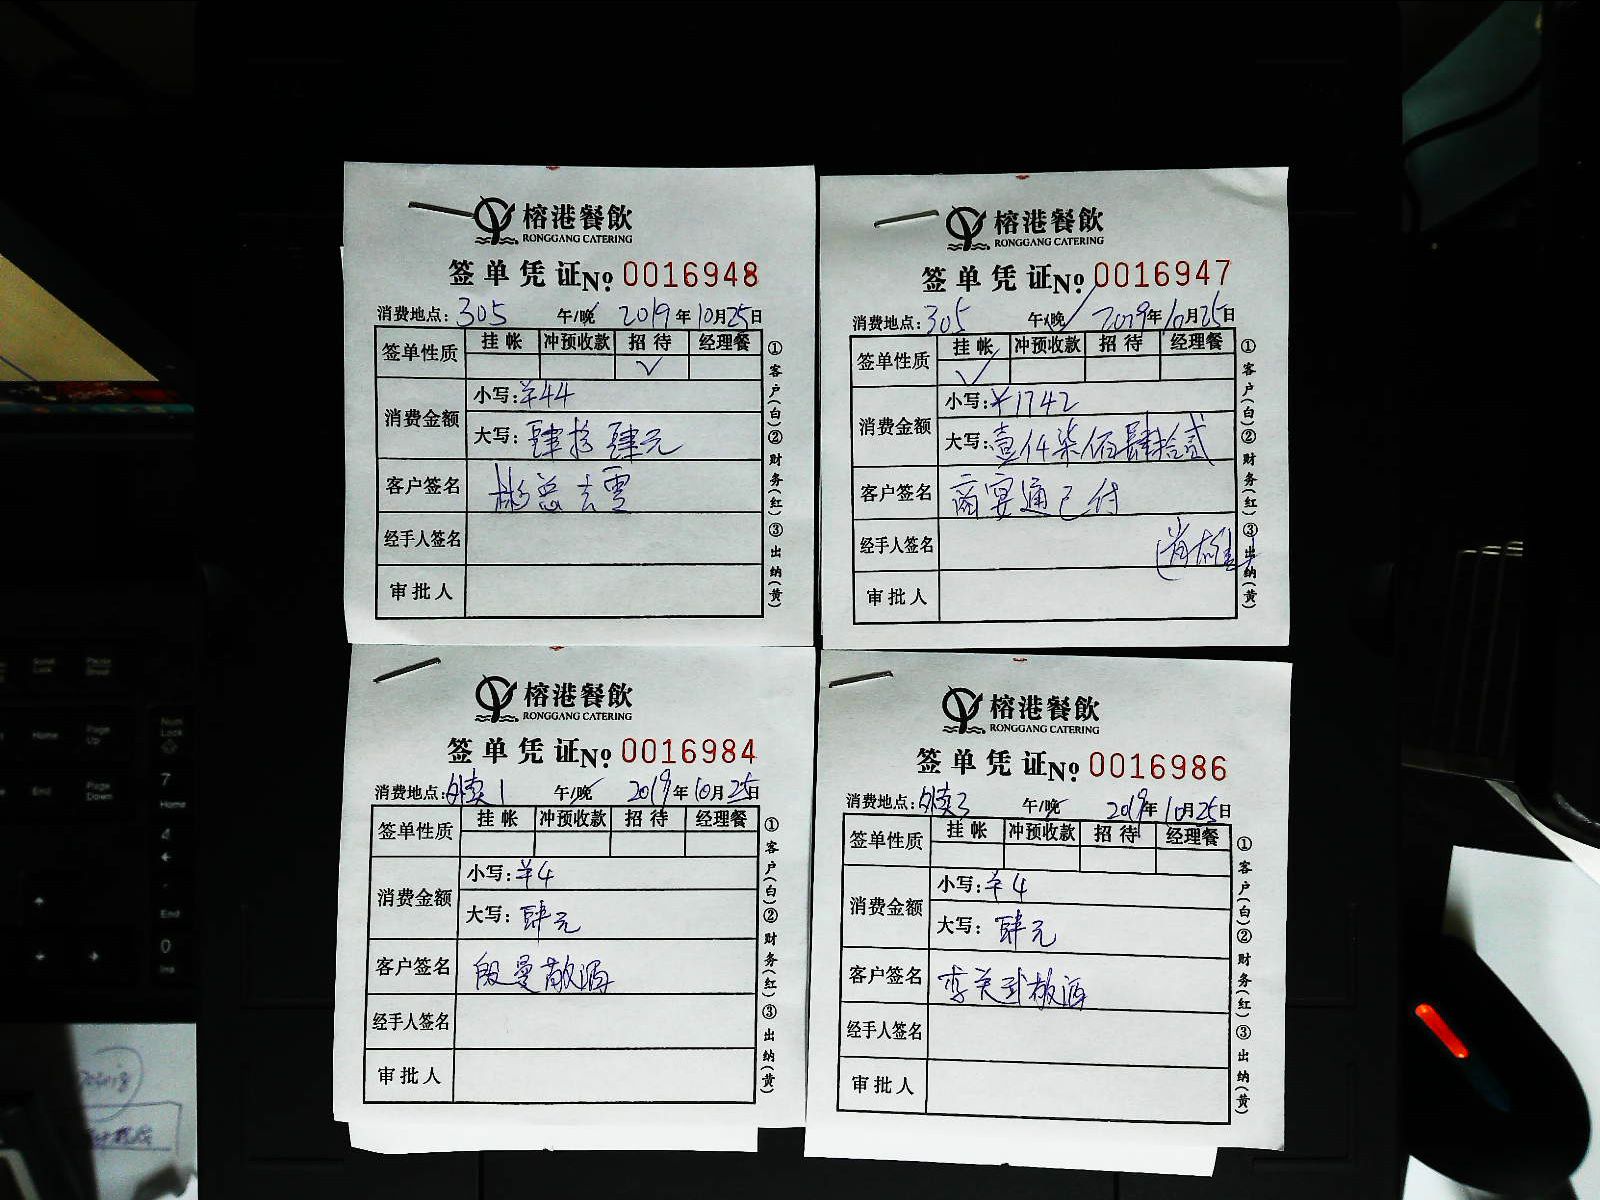 榕港餐飲
RONGGANG CATERING
签单凭证No 0016948
消费地点:305 午/晚 2019年10月25日
签单性质 挂帐 冲预收款 招待 经理餐
√
消费金额 小写:¥44
大写:肆拾肆元
客户签名 彬总去零
经手人签名
审批人
①客户(白)②财务(红)③出纳(黄)
榕港餐飲
RONGGANG CATERING
签单凭证No 0016947
消费地点:305 午/晚 2019年10月25日
签单性质 挂帐 冲预收款 招待 经理餐
√
消费金额 小写:¥1742
大写:壹仟柒佰肆拾贰
客户签名 商宴通已付
经手人签名
审批人
①客户(白)②财务(红)③出纳(黄)
榕港餐飲
RONGGANG CATERING
签单凭证No 0016984
消费地点:外卖1 午/晚 2019年10月25日
签单性质 挂帐 冲预收款 招待 经理餐
消费金额 小写:¥4
大写:肆元
客户签名
经手人签名
审批人
①客户(白)②财务(红)③出纳(黄)
榕港餐飲
RONGGANG CATERING
签单凭证No 0016986
消费地点:外卖3 午/晚 2019年10月25日
签单性质 挂帐 冲预收款 招待 经理餐
消费金额 小写:¥4
大写:肆元
客户签名
经手人签名
审批人
①客户(白)②财务(红)③出纳(黄)
Home
Page Up
End
Page Down
Num Lock
7
Home
4
End
0
Ins